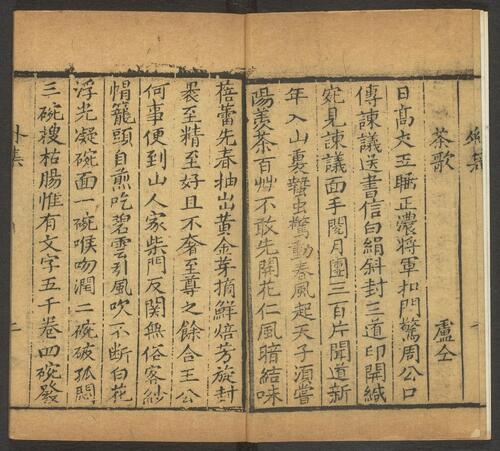 茶歌　盧仝
日高丈五睡正濃將軍扣門驚周公口
傳諫議送書信白絹斜封三道印開緘
宛見諫議面手閱月團三百片聞道新
年入山裏蟄虫驚動春風起天子須嘗
陽羨茶百艸不敢先開花仁風暗結味
蓓蕾先春抽出黃金芽摘鮮焙芳旋封
裹至精至好且不奢至尊之餘合王公
何事便到山人家柴門反關無俗客紗
帽籠頭自煎吃碧雲引風吹不断白花
浮光凝碗面一碗喉吻潤二碗破孤悶
三碗搜枯腸惟有文字五千卷四碗發